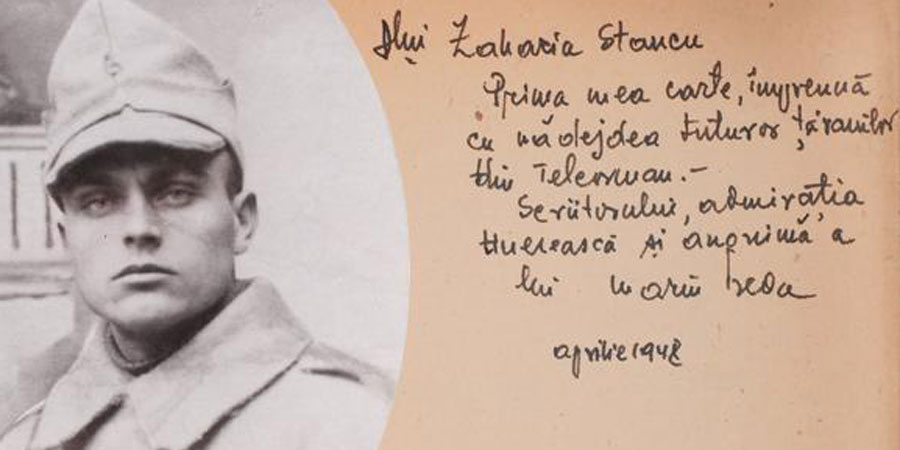 Dlui Zaharia Stancu
Prima mea carte, împreună
cu nădejdea tuturor țăranilor
din Teleorman.-
Scriitorului, admirația
tinerească și anonimă a
lui Marin Preda
aprilie 1948